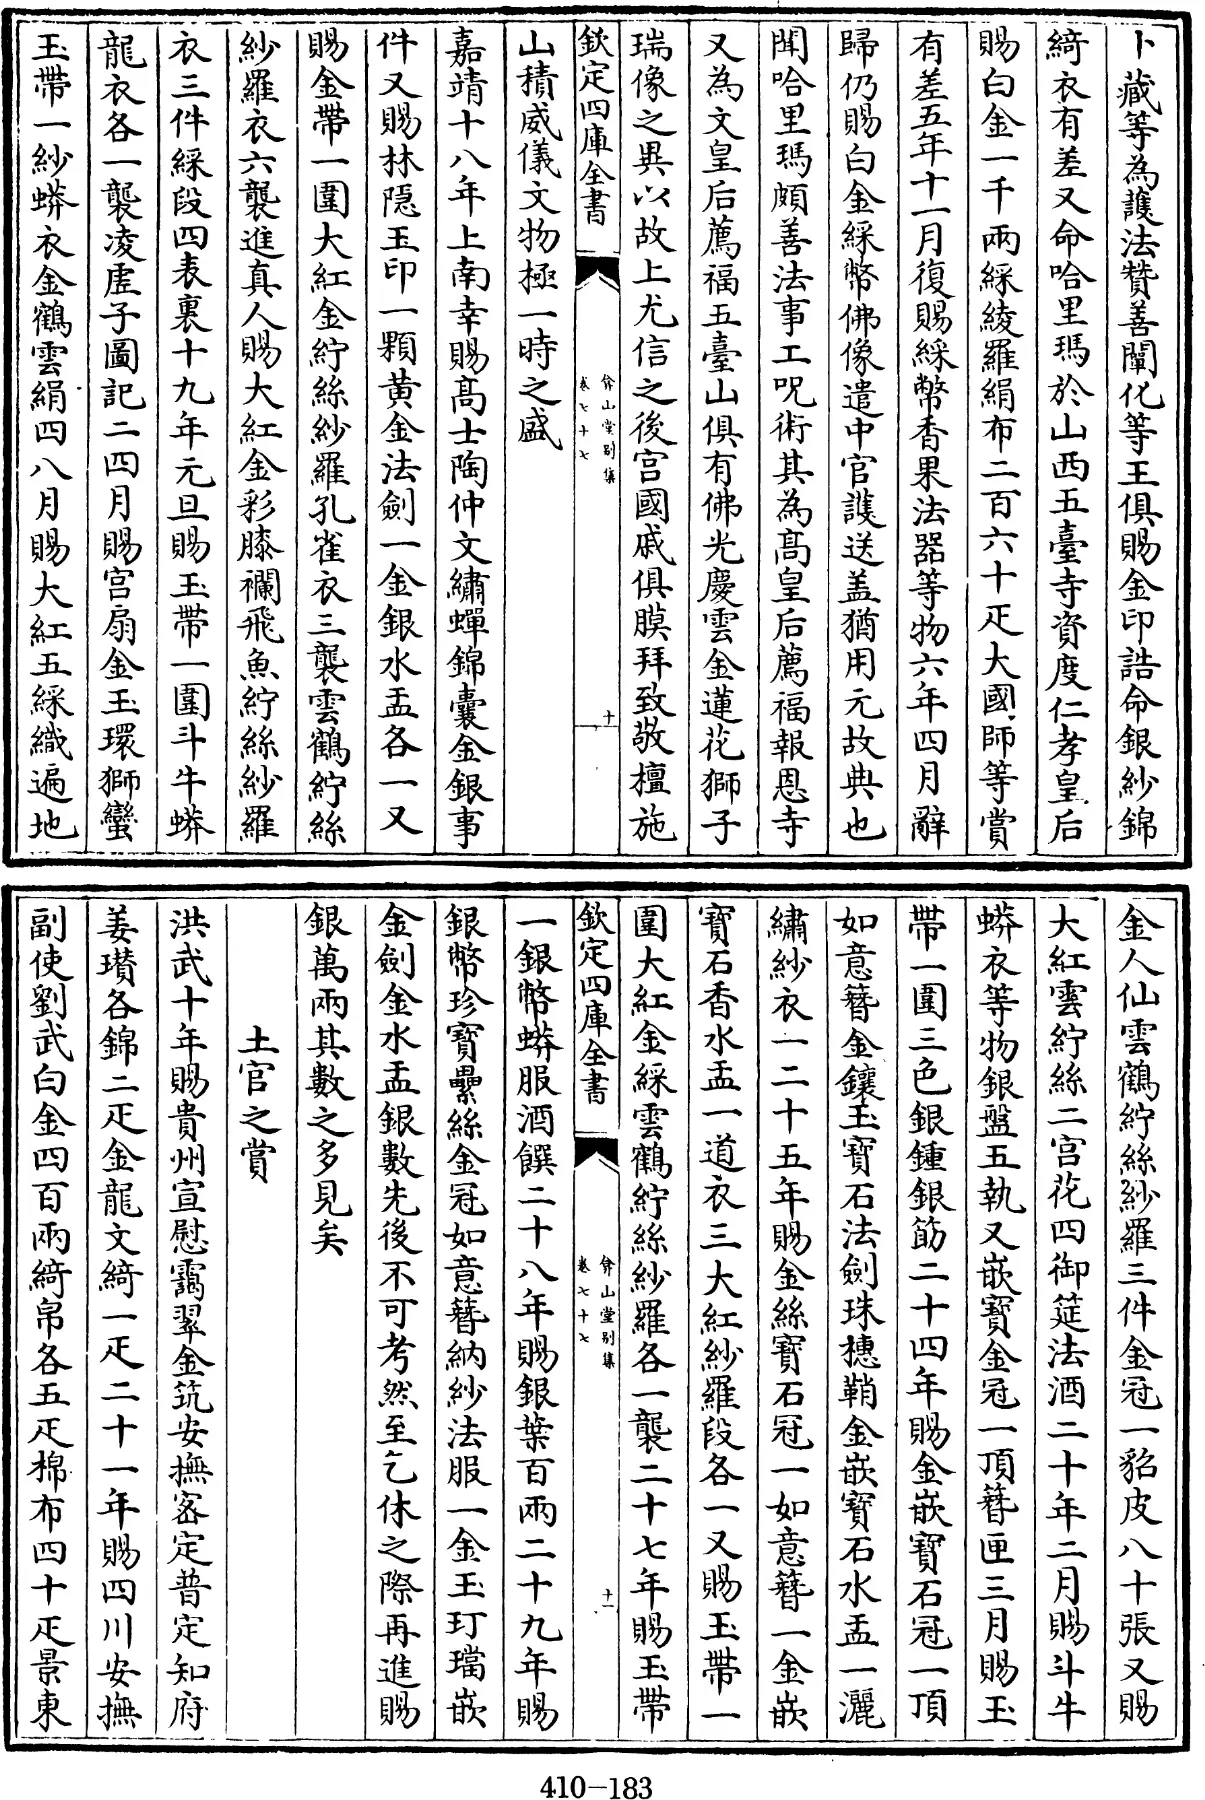 卜藏等為護法贊善闡化等王俱賜金印誥命銀紗錦
綺衣有差又命哈里瑪於山西五臺寺資度仁孝皇后
賜白金一千兩綵綾羅絹布二百六十疋大國師等賞
有差五年十一月復賜綵幣香果法器等物六年四月辭
歸仍賜白金綵幣佛像遣中官護送盖猶用元故典也
聞哈里瑪頗善法事工呪術其為髙皇后薦福報恩寺
又為文皇后薦福五臺山俱有佛光慶雲金蓮花獅子
瑞像之異以故上尤信之後宫國戚俱膜拜致敬檀施
欽定四庫全書
弇山堂别集
卷七十七
十
山積威儀文物極一時之盛
嘉靖十八年上南幸賜髙士陶仲文繡蟬錦囊金銀事
件又賜林隠玉印一顆黄金法劍一金銀水盂各一又
賜金帶一圍大紅金紵絲紗羅孔雀衣三襲雲鶴紵絲
紗羅衣六襲進真人賜大紅金彩膝襴飛魚紵絲紗羅
衣三件綵段四表裏十九年元旦賜玉帶一圍斗牛蟒
龍衣各一襲凌虚子圖記二四月賜宫扇金玉環獅蠻
玉帶一紗蟒衣金鶴雲絹四八月賜大紅五綵織遍地
金人仙雲鶴紵絲紗羅三件金冠一貂皮八十張又賜
大紅雲紵絲二宫花四御筵法酒二十年二月賜斗牛
蟒衣等物銀盤五執又嵌寳金冠一頂簪匣三月賜玉
帶一圍三色銀鍾銀筯二十四年賜金嵌寳石冠一頂
如意簪金鑲玉寳石法劍珠穗鞘金嵌寳石水盂一灑
繡紗衣一二十五年賜金絲寳石冠一如意簪一金嵌
寳石香水盂一道衣三大紅紗羅段各一又賜玉帶一
圍大紅金綵雲鶴紵絲紗羅各一襲二十七年賜玉帶
欽定四庫全書
弇山堂别集
卷七十七
十一
一銀幣蟒服酒饌二十八年賜銀葉百兩二十九年賜
銀幣珍寳纍絲金冠如意簪納紗法服一金玉玎璫嵌
金劍金水盂銀數先後不可考然至乞休之際再進賜
銀萬兩其數之多見矣
土官之賞
洪武十年賜貴州宣慰靄翠金筑安撫宻定普定知府
姜瓚各錦二疋金龍文綺一疋二十一年賜四川安撫
副使劉武白金四百兩綺帛各五疋棉布四十疋景東
410-183